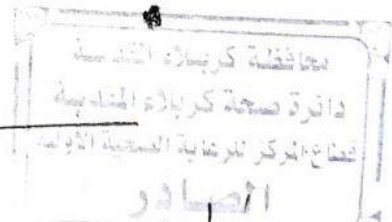 محافظة كربلاء المقدسة
دائرة صحة كربلاء المقدسة
قطاع المركز للرعاية الصحية الأولية
الصادر